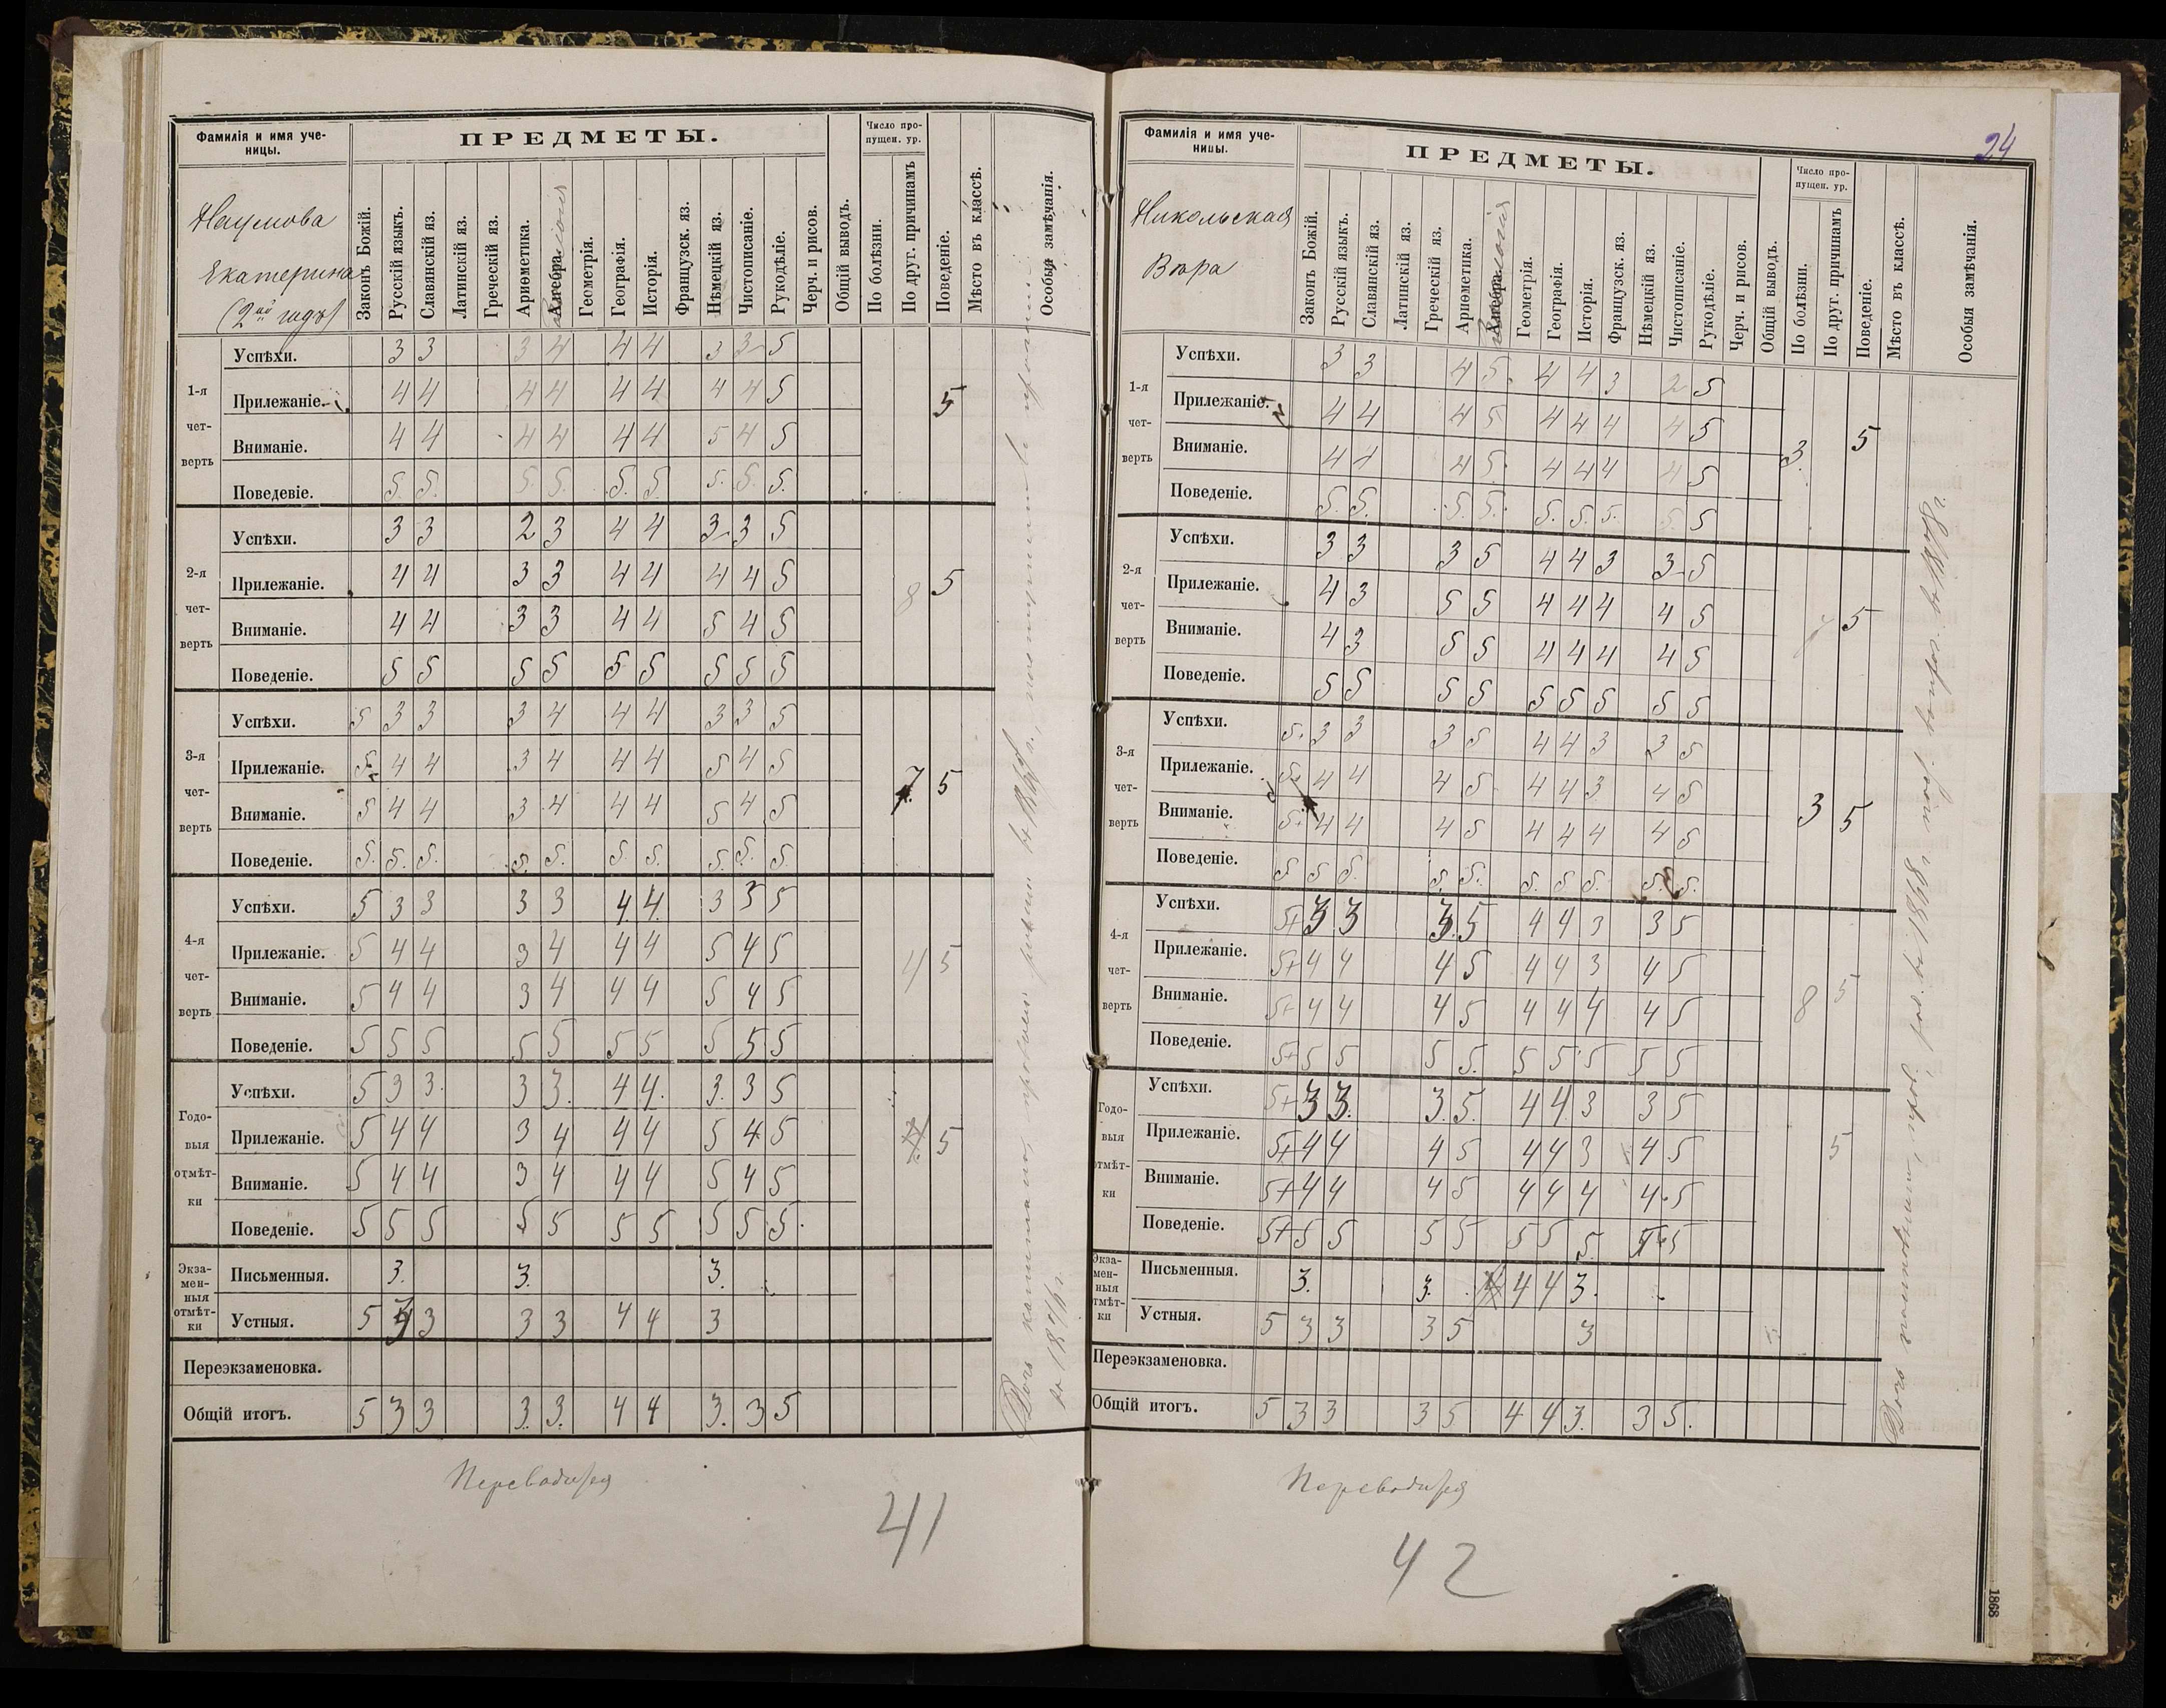 Фамилія и имя уче-
ницы.
ПРЕДМЕТЫ.
Число про-
пущен. ур.
Наумова
Екатерина
(2ой годъ)
Законъ Божій.
Русскій языкъ.
Славянскій яз.
Латинскій яз.
Греческій яз.
Ариѳметика.
Алгебра.
Геометрія.
Географія.
Исторія.
Французск. яз.
Нѣмецкій яз.
Чистописаніе.
Рукодѣліе.
Черч. и рисов.
Общій выводъ.
По болѣзни.
По друг. причинамъ
Поведеніе.
Мѣсто въ классѣ.
Особыя замѣчанія.
1-я
чет-
верть
Успѣхи. 3 3 3 4 4 4 3 3 5
Прилежаніе. 4 4 4 4 4 4 4 4 5 5
Вниманіе. 4 4 4 4 4 4 5 4 5
Поведеніе. 5. 5. 5. 5. 5. 5. 5. 5. 5.
2-я
чет-
верть
Успѣхи. 3 3 2 3 4 4 3 3 5
Прилежаніе. 4 4 3 3 4 4 4 4 5 8 5
Вниманіе. 4 4 3 3 4 4 5 4 5
Поведеніе. 5 5 5 5 5 5 5 5 5
3-я
чет-
верть
Успѣхи. 5 3 3 3 4 4 4 3 3 5
Прилежаніе. 5 4 4 3 4 4 4 5 4 5 7 5
Вниманіе. 5 4 4 3 4 4 4 5 4 5
Поведеніе. 5. 5. 5. 5. 5. 5. 5. 5. 5. 5.
4-я
чет-
верть
Успѣхи. 5 3 3 3 3 4 4 3 3 5
Прилежаніе. 5 4 4 3 4 4 4 5 4 5 4 5
Вниманіе. 5 4 4 3 4 4 4 5 4 5
Поведеніе. 5 5 5 5 5 5 5 5 5 5
Годо-
выя
отмѣт-
ки
Успѣхи. 5 3 3. 3 3. 4 4. 3. 3 5
Прилежаніе. 5 4 4 3 4 4 4 5 4 5 5
Вниманіе. 5 4 4 3 4 4 4 5 4 5
Поведеніе. 5 5 5 5 5 5 5 5 5 5.
Экза-
мен-
ныя
отмѣт-
ки
Письменныя. 3. 3. 3.
Устныя. 5 3 3 3 3 4 4 3
Переэкзаменовка.
Общій итогъ. 5 3 3 3. 3. 4 4 3. 3 5
Переводится
41
24
Фамилія и имя уче-
ницы.
ПРЕДМЕТЫ.
Число про-
пущен. ур.
Никольская
Вѣра
Законъ Божій.
Русскій языкъ.
Славянскій яз.
Латинскій яз.
Греческій яз.
Ариѳметика.
Алгебра.
Геометрія.
Географія.
Исторія.
Французск. яз.
Нѣмецкій яз.
Чистописаніе.
Рукодѣліе.
Черч. и рисов.
Общій выводъ.
По болѣзни.
По друг. причинамъ
Поведеніе.
Мѣсто въ классѣ.
Особыя замѣчанія.
1-я
чет-
верть
Успѣхи. 3 3 4 5. 4 4 3 2 5
Прилежаніе. 4 4 4 5 4 4 4 4 5
Вниманіе. 4 4 4 5. 4 4 4 4 5 3. 5
Поведеніе. 5. 5. 5. 5. 5. 5. 5. 5. 5
2-я
чет-
верть
Успѣхи. 3 3 3 5 4 4 3 3 5
Прилежаніе. 4 3 5 5 4 4 4 4 5 5
Вниманіе. 4 3 5 5 4 4 4 4 5
Поведеніе. 5 5 5 5 5 5 5 5 5
3-я
чет-
верть
Успѣхи. 5. 3 3 3 5 4 4 3 3 5
Прилежаніе. 5. 4 4 4 5 4 4 3 4 5
Вниманіе. 5. 4 4 4 5 4 4 4 4 5 3 5
Поведеніе. 5 5 5. 5. 5. 5. 5. 5. 5. 5.
4-я
чет-
верть
Успѣхи. 5+ 3 3 3. 5 4 4 3 3 5
Прилежаніе. 5+ 4 4 4 5 4 4 3 4 5
Вниманіе. 5+ 4 4 4 5 4 4 4 4 5 8 5
Поведеніе. 5+ 5 5 5 5. 5 5 5 5 5
Годо-
выя
отмѣт-
ки
Успѣхи. 5+ 3 3. 3. 5. 4 4 3 3 5
Прилежаніе. 5+ 4 4 4 5 4 4 3 4 5 5
Вниманіе. 5+ 4 4 4 5 4 4 4 4 5
Поведеніе. 5+ 5 5 5 5 5 5 5. 5 5
Экза-
мен-
ныя
отмѣт-
ки
Письменныя. 3. 3. 4 4 3.
Устныя. 5 3 3 3 5 3
Переэкзаменовка.
Общій итогъ. 5 3 3 3 5 4 4 3. 3 5.
Переводится
42
1868